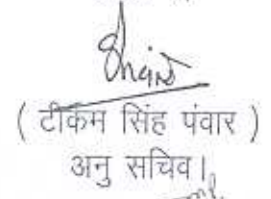 ( टीकम सिंह पंवार )
अनु सचिव।